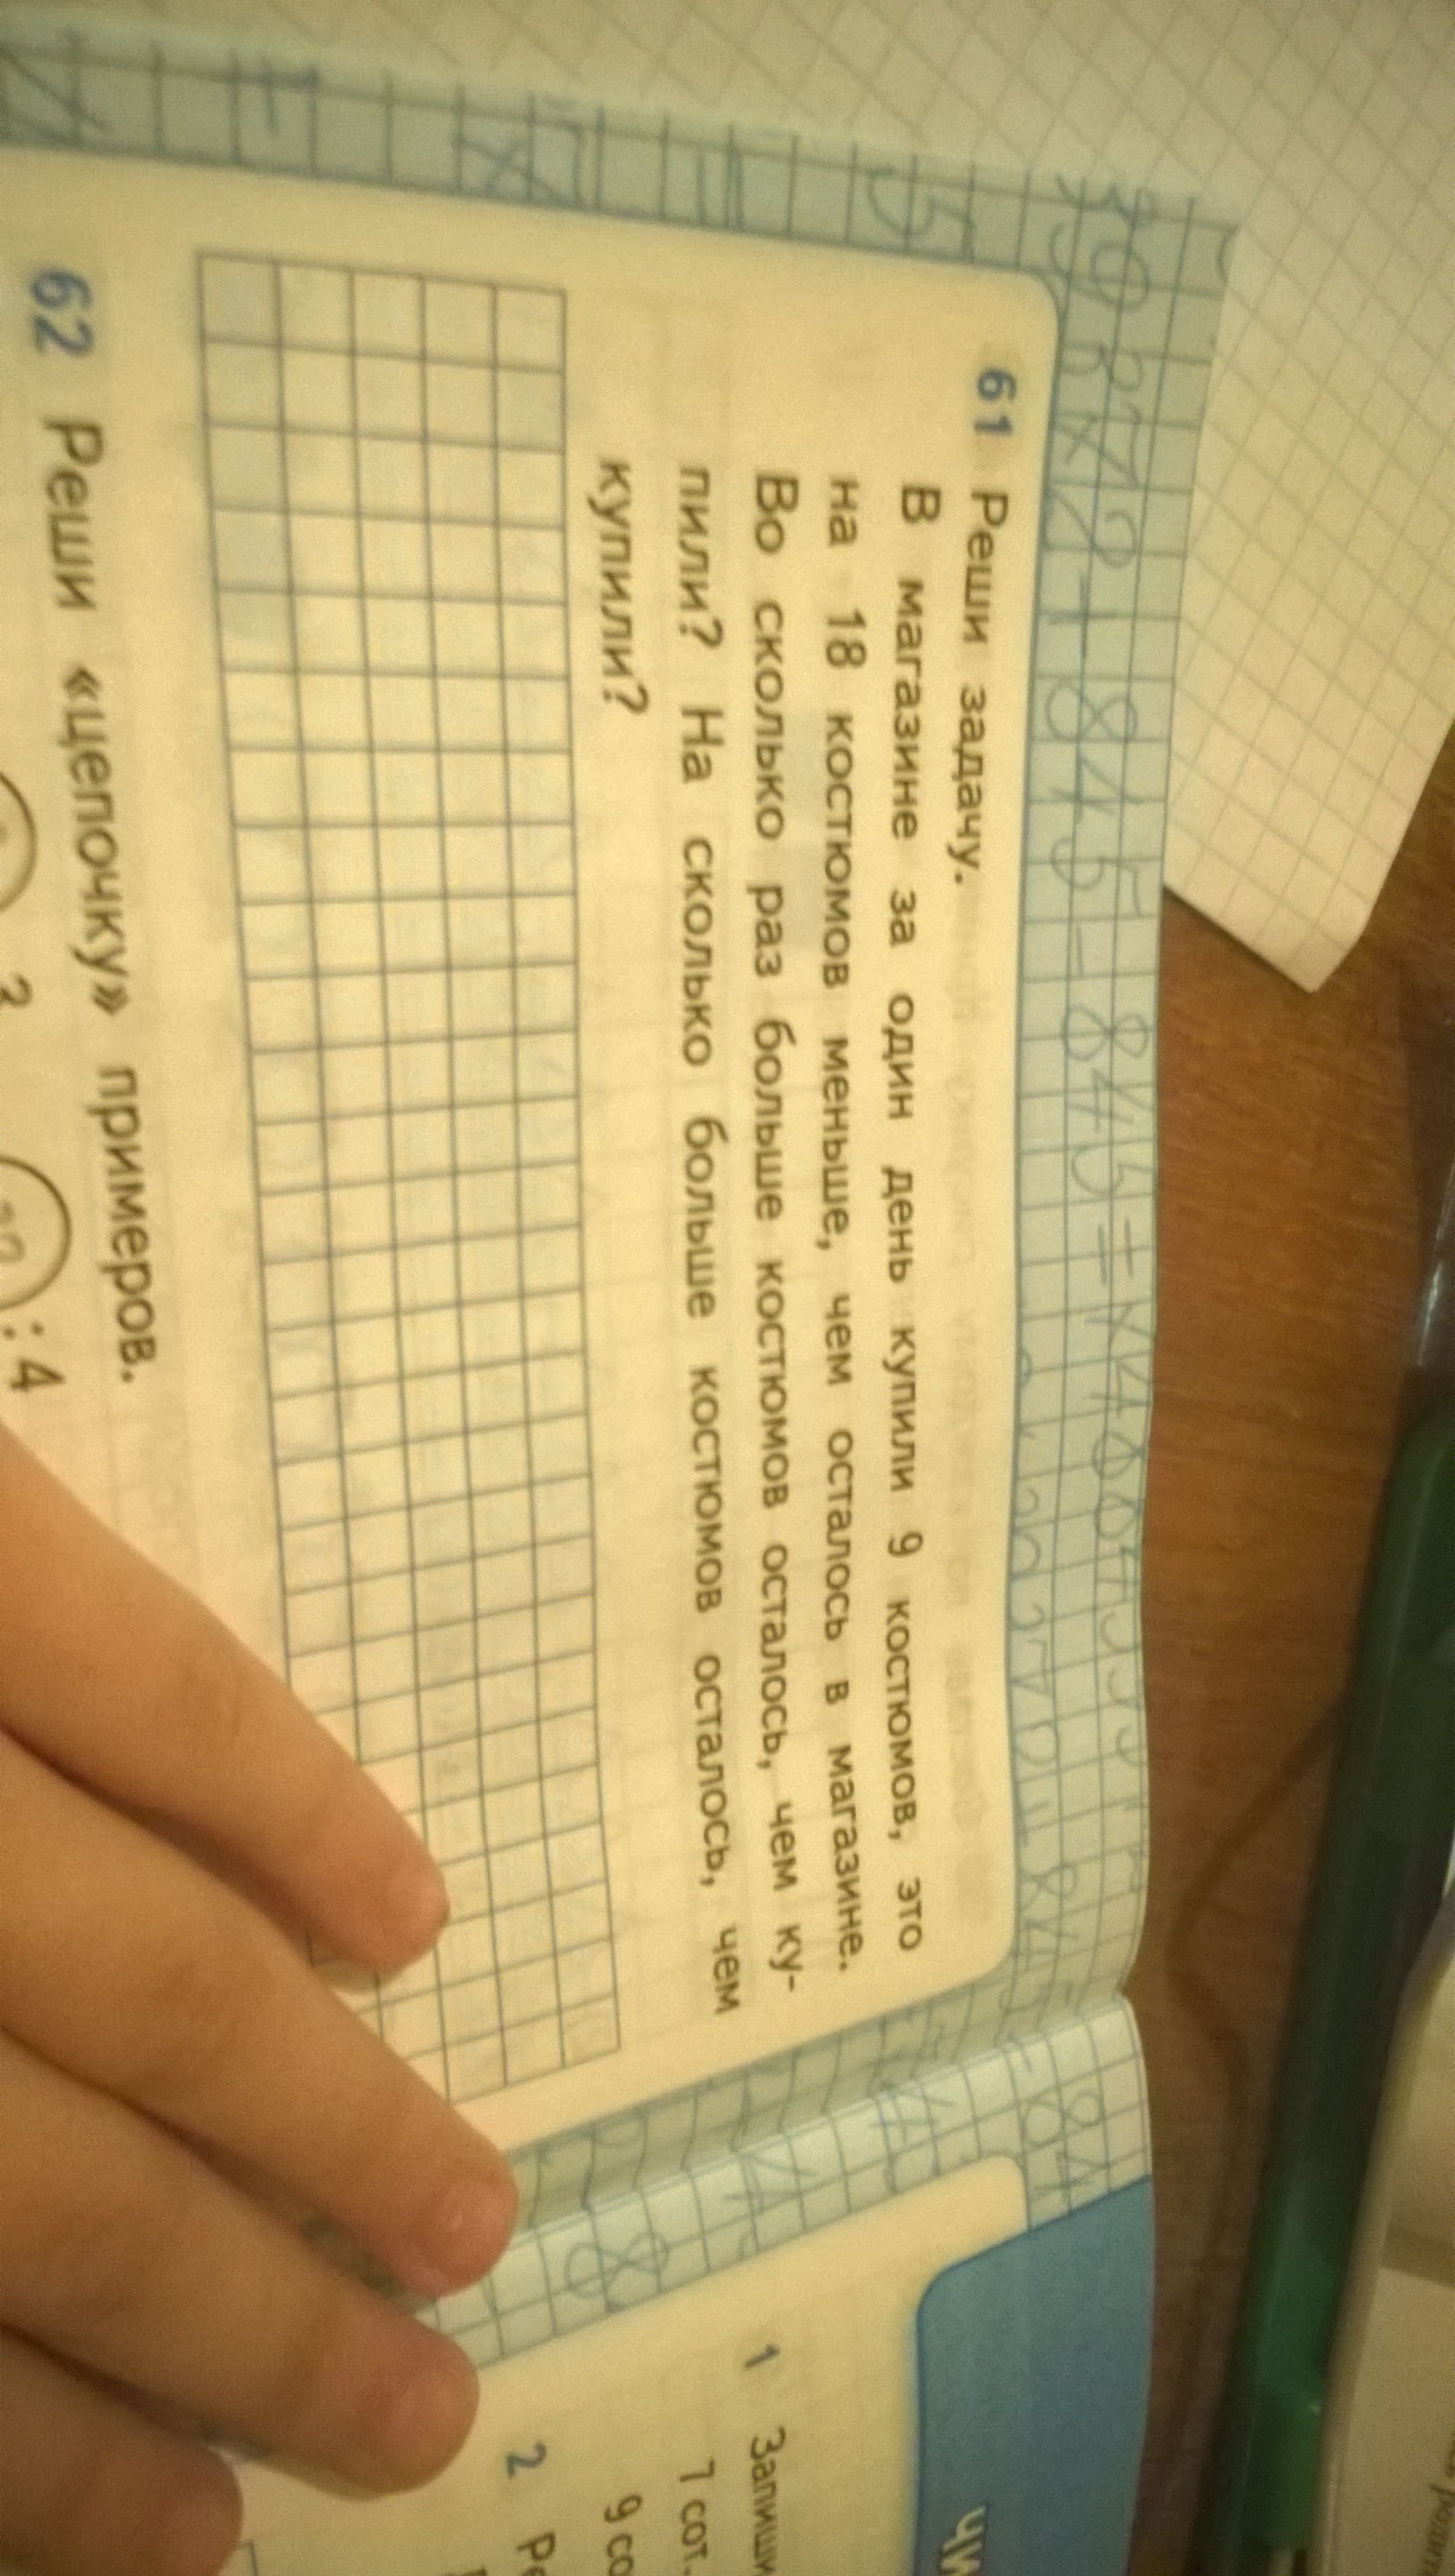 61 Реши задачу.
В магазине за один день купили 9 костюмов, это
на 18 костюмов меньше, чем осталось в магазине.
Во сколько раз больше костюмов осталось, чем ку-
пили? На сколько больше костюмов осталось, чем
купили?
62 Реши «цепочку» примеров.
:4
1 Запиши
7 сот.
9 со
2 Ре